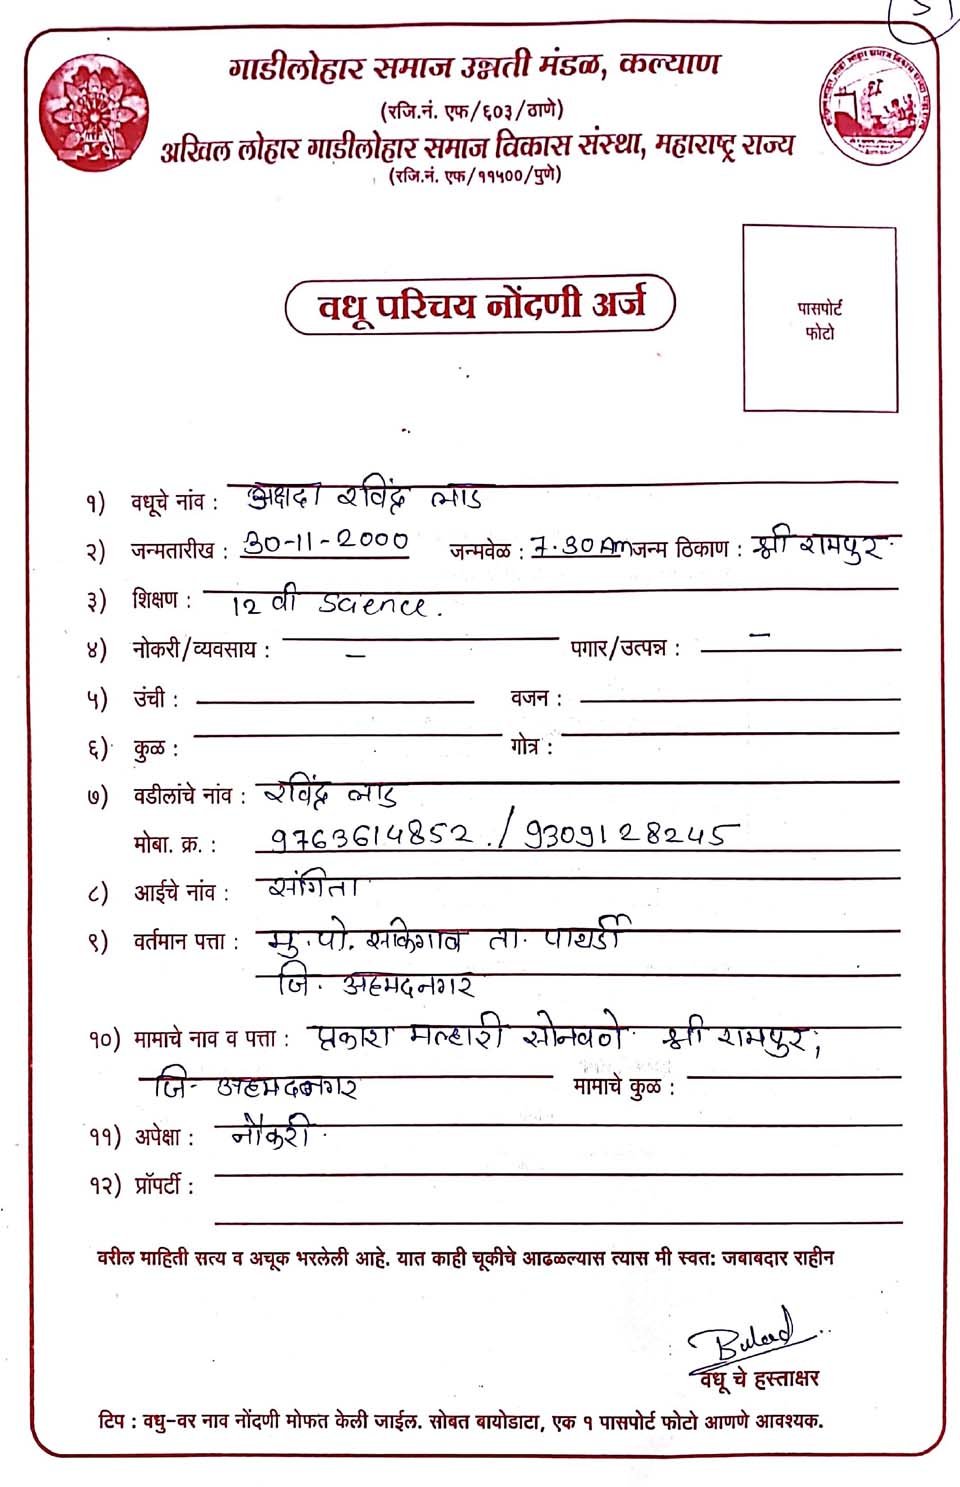 गाडीलोहार समाज उन्नती मंडळ, कल्याण
(रजि.नं. एफ/६०३/ठाणे)
अखिल लोहार गाडीलोहार समाज विकास संस्था, महाराष्ट्र राज्य
(रजि.नं. एफ/११५००/पुणे)
पासपोर्ट
फोटो
वधू परिचय नोंदणी अर्ज
१) वधूचे नांव : अक्षदा रविंद्र लाड
२) जन्मतारीख : 30-11-2000 जन्मवेळ : 7.30 Am जन्म ठिकाण : श्री रामपुर
३) शिक्षण : 12 वी Science.
४) नोकरी/व्यवसाय : – पगार/उत्पन्न : –
५) उंची : वजन :
६) कुळ : गोत्र :
७) वडीलांचे नांव : रविंद्र लाड
मोबा. क्र. : 9763614852 / 9309128245
८) आईचे नांव : संगिता
९) वर्तमान पत्ता : मु.पो. साकेगाव ता. पाथर्डी
जि. अहमदनगर
१०) मामाचे नाव व पत्ता : प्रकाश मल्हारी सोनवणे श्री रामपुर,
जि- अहमदनगर मामाचे कुळ :
११) अपेक्षा : नौकरी.
१२) प्रॉपर्टी :
वरील माहिती सत्य व अचूक भरलेली आहे. यात काही चूकीचे आढळल्यास त्यास मी स्वत: जबाबदार राहीन
वधू चे हस्ताक्षर
टिप : वधु-वर नाव नोंदणी मोफत केली जाईल. सोबत बायोडाटा, एक १ पासपोर्ट फोटो आणणे आवश्यक.